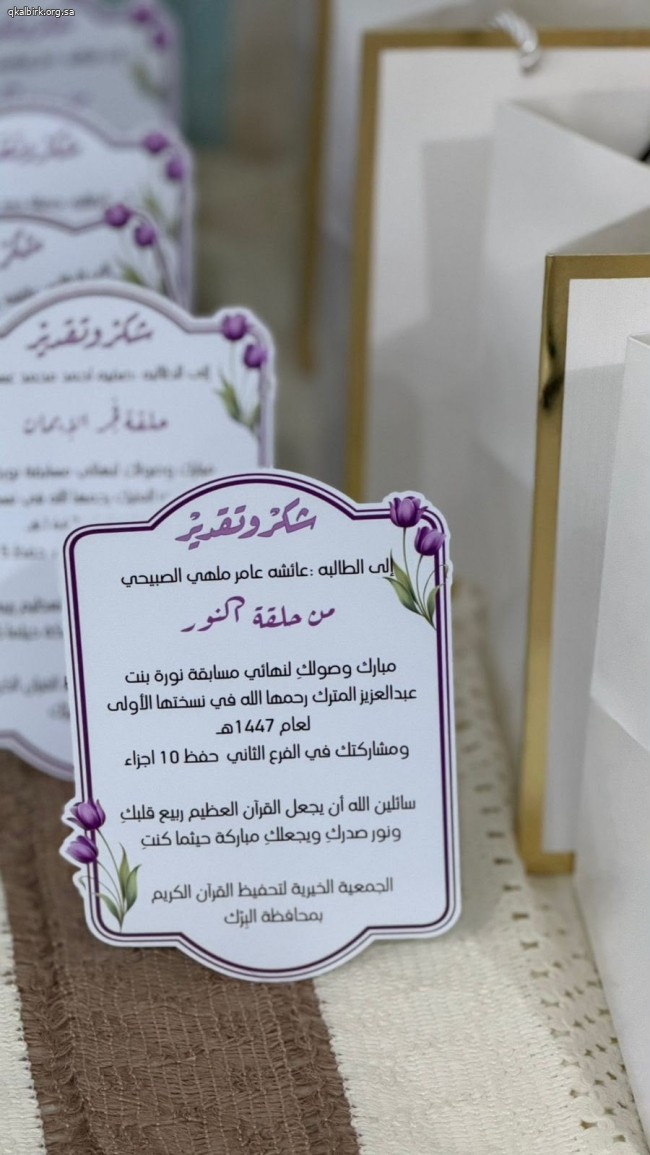 qkalbirk.org.sa
شكر وتقدير
شكر
شكر وتقدير
حلقة فجر الإيمان
شكر وتقدير
إلى الطالبه :عائشه عامر ملهي الصبيحي
من حلقة النور
مبارك وصولكِ لنهائي مسابقة نورة بنت
عبدالعزيز المترك رحمها الله في نسختها الأولى
لعام 1447هـ
ومشاركتك في الفرع الثاني حفظ 10 اجزاء
سائلين الله أن يجعل القرآن العظيم ربيع قلبكِ
ونور صدركِ ويجعلكِ مباركة حيثما كنتِ
الجمعية الخيرية لتحفيظ القرآن الكريم
بمحافظة البِرْك